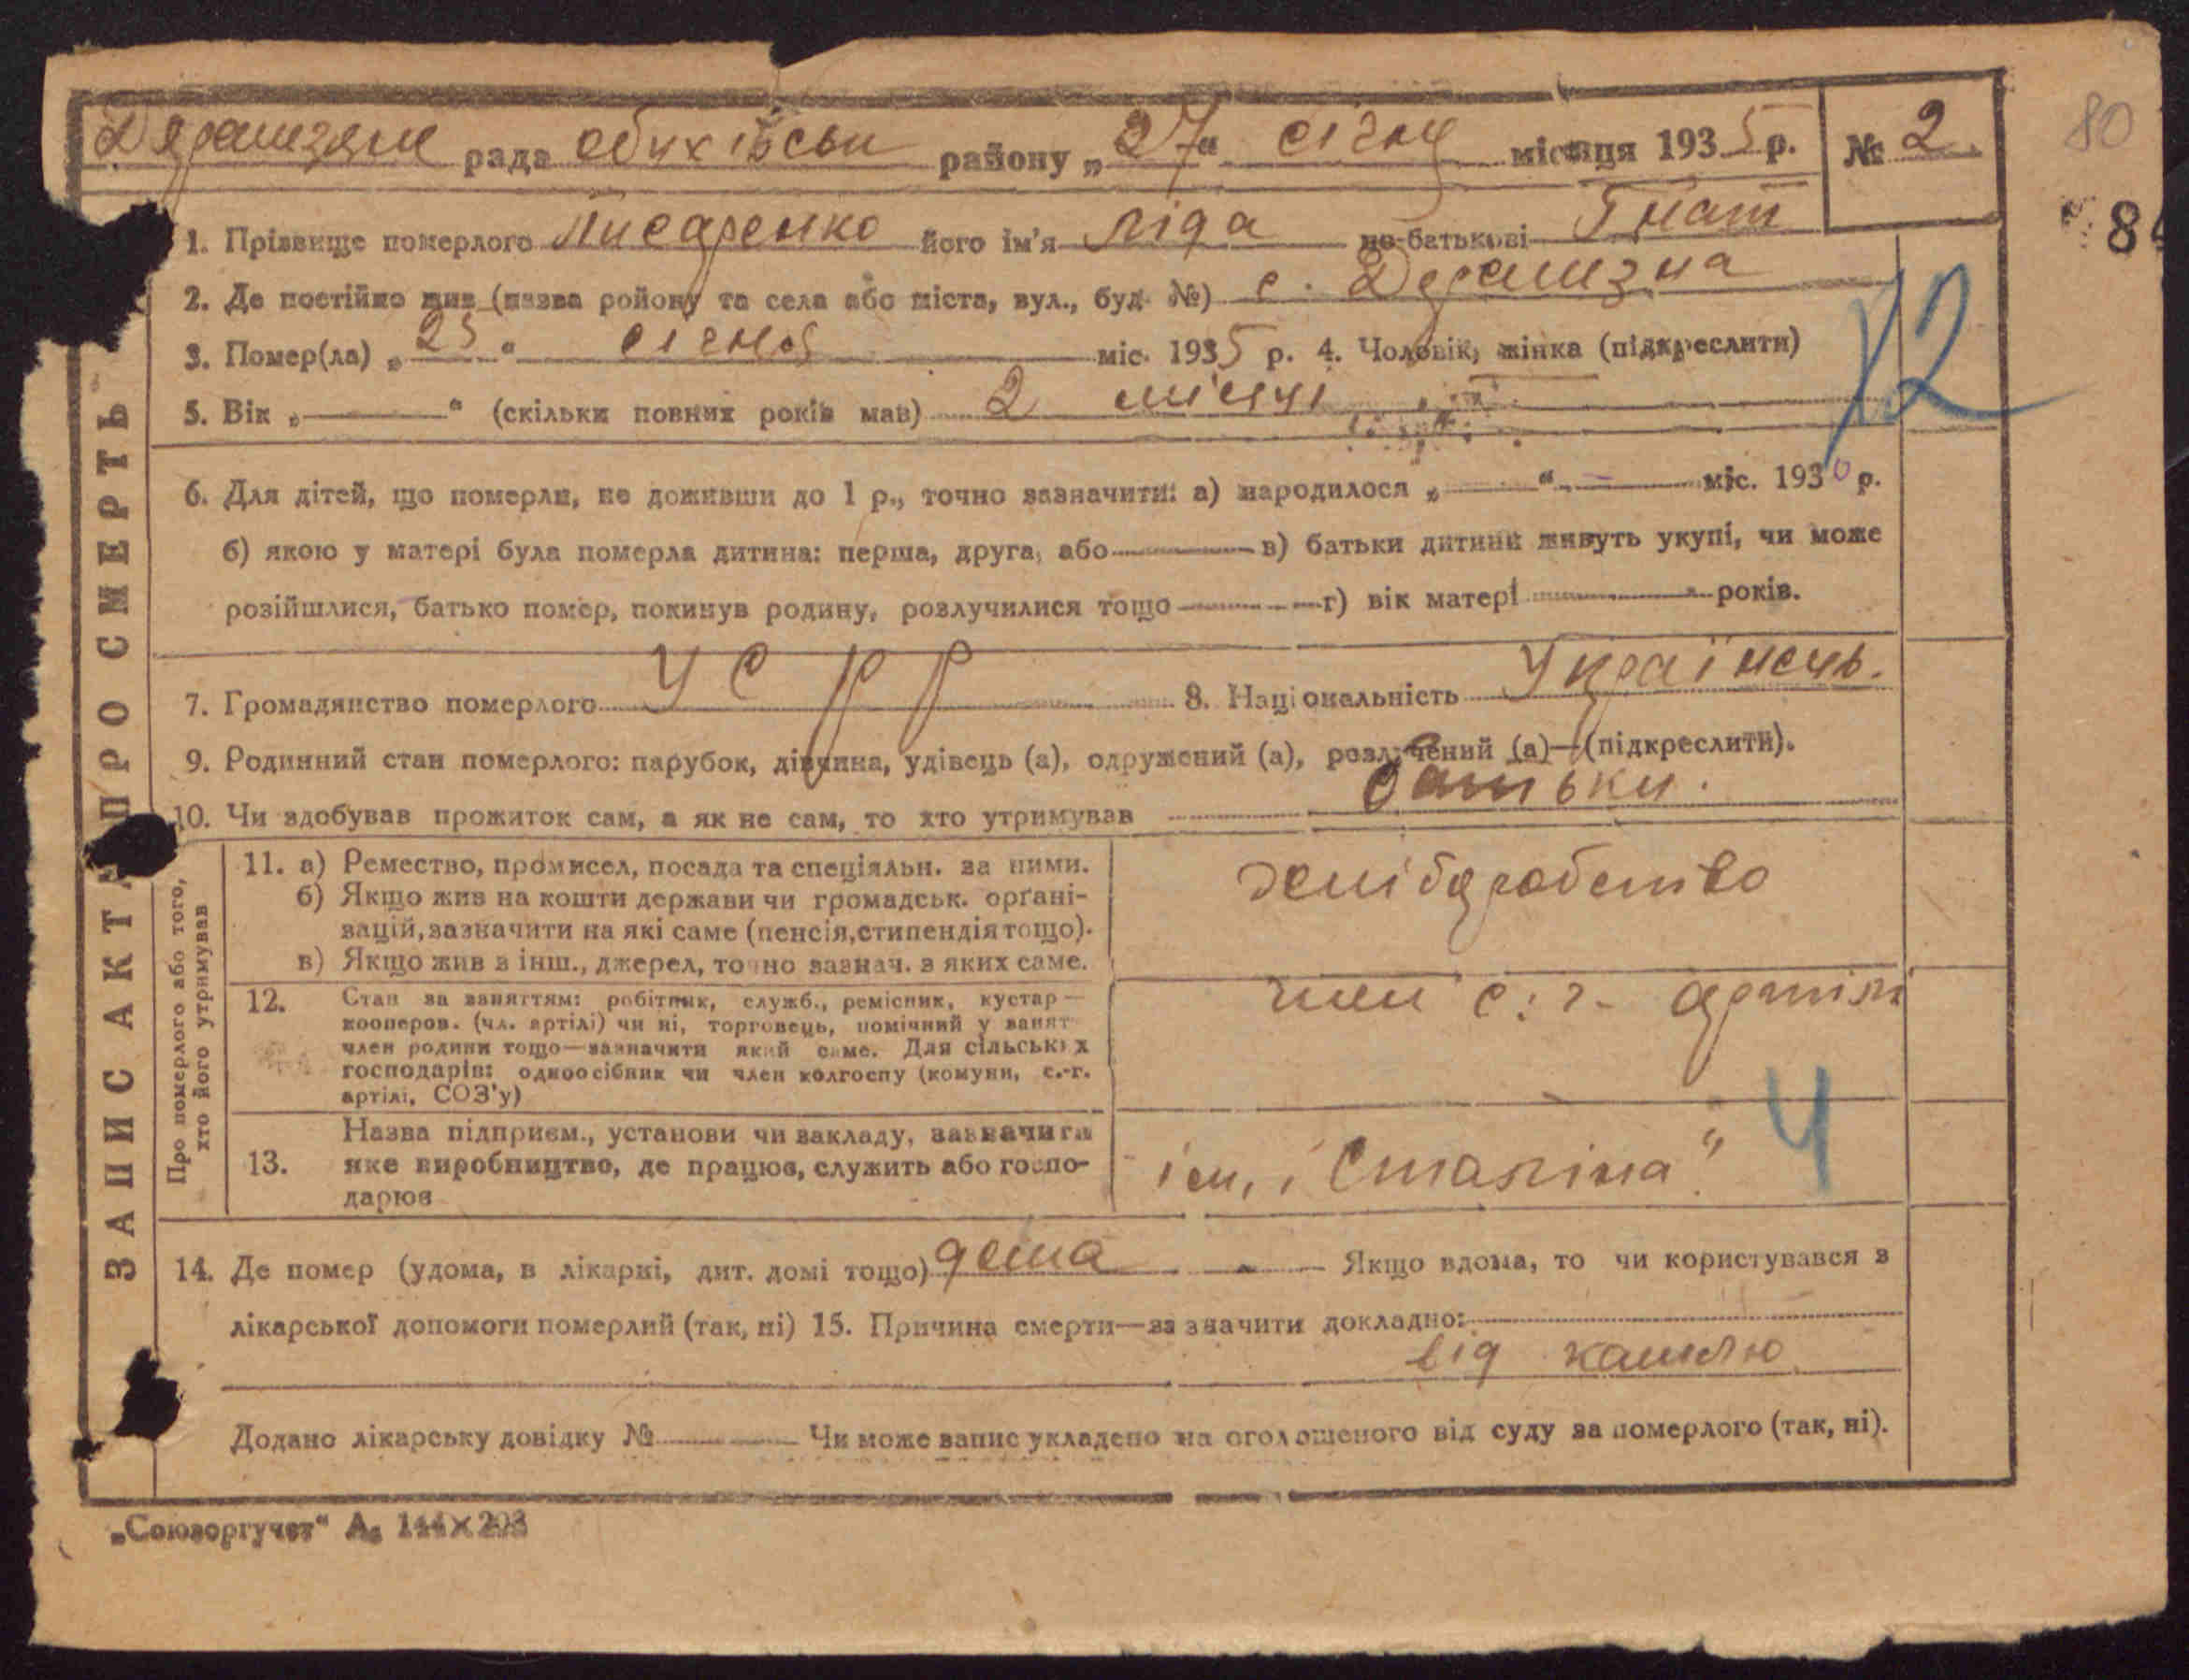 Деремезяне рада обухівськ району „27“ січня місяця 1935 р. № 2. 80
84
1. Прізвище померлого Писаренко його ім'я Ліда по-батькові Гнат
2. Де постійно жив (назва ройону та села або міста, вул., буд. №) с. Деремезна
12
3. Помер(ла) „25“ січня міс. 1935 р. 4. Чоловік, жінка (підкреслити)
5. Вік „—“ (скільки повних років мав) 2 місяці
6. Для дітей, що померли, не доживши до 1 р., точно зазначити: а) народилося „—“ — міс. 1930 р.
б) якою у матері була померла дитина: перша, друга, або — в) батьки дитини живуть укупі, чи може
розійшлися, батько помер, покинув родину, розлучилися тощо — г) вік матері — років.
7. Громадянство померлого УСРР 8. Національність Українець.
9. Родинний стан померлого: парубок, дівчина, удівець (а), одружений (а), розлучений (а)—(підкреслити).
10. Чи здобував прожиток сам, а як не сам, то хто утримував батьки.
ЗАПИС АКТА ПРО СМЕРТЬ
Про померлого або того, хто його утримував
11. а) Ремество, промисел, посада та спеціяльн. за ними.
б) Якщо жив на кошти держави чи громадськ. орґані-
зацій, зазначити на які саме (пенсія, стипендія тощо).
в) Якщо жив з інш., джерел, точно зазнач. з яких саме.
хлібаробство
12. Стан за заняттям: робітник, служб., ремісник, кустар—
кооперов. (чл. артілі) чи ні, торговець, помічний у занят
член родини тощо—зазначити який саме. Для сільських
господарів: одноосібник чи член колгоспу (комуни, с.-г.
артілі, СОЗ'у)
член с. г. артіл
13. Назва підприєм., установи чи закладу, зазначити
яке виробництво, де працює, служить або госпо-
дарює
ім, Сталіна" 4
14. Де помер (удома, в лікарні, дит. домі тощо) дома — Якщо вдома, то чи користувався з
лікарської допомоги померлий (так, ні) 15. Причина смерти—зазначити докладно:
від кашлю
Додано лікарську довідку № — Чи може запис укладено на оголошеного від суду за померлого (так, ні).
„Союзоргучет“ А₅ 144×203